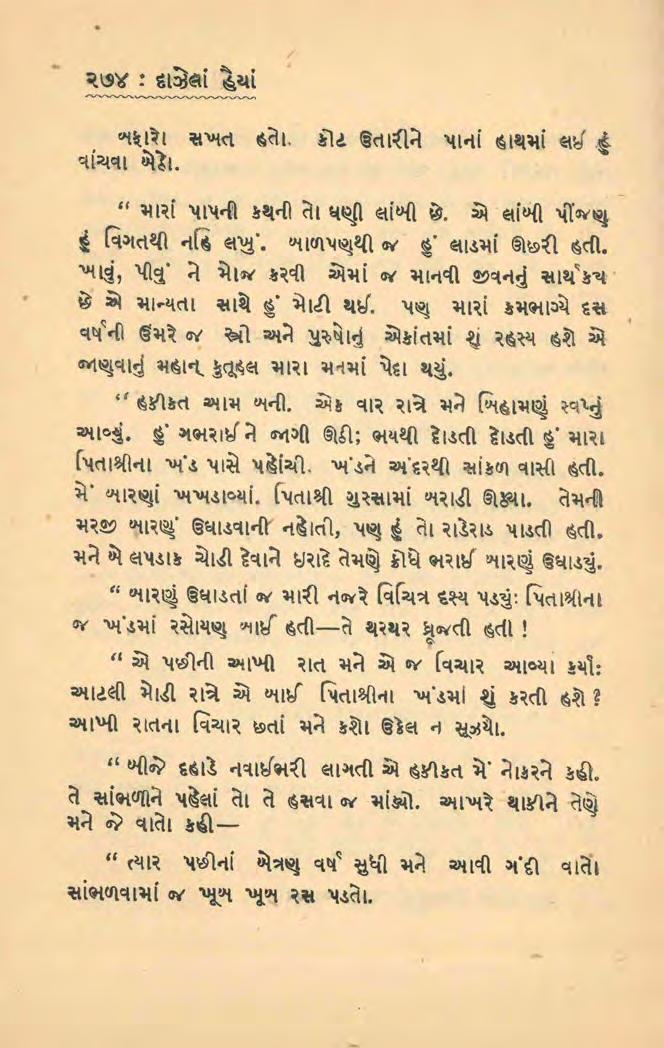 ૨૭૪ : દાઝેલાં હૈયાં
બફારો સખત હતો. કોટ ઉતારીને પાનાં હાથમાં લઈ હું
વાંચવા બેઠો.
“ મારાં પાપની કથની તો ઘણી લાંબી છે. એ લાંબી પીંજણ
હું વિગતથી નહિ લખું. બાળપણથી જ હું લાડમાં ઊછરી હતી.
ખાવું, પીવું ને મોજ કરવી એમાં જ માનવી જીવનનું સાર્થક્ય
છે એ માન્યતા સાથે હું મોટી થઈ. પણ મારાં કમભાગ્યે દસ
વર્ષની ઉંમરે જ સ્ત્રી અને પુરુષોનું એકાંતમાં શું રહસ્ય હશે એ
જાણવાનું મહાન્ કુતૂહલ મારા મનમાં પેદા થયું.
“ હકીકત આમ બની. એક વાર રાત્રે મને બિહામણું સ્વપ્નું
આવ્યું. હું ગભરાઈને જાગી ઊઠી; ભયથી દોડતી દોડતી હું મારા
પિતાશ્રીના ખંડ પાસે પહોંચી. ખંડને અંદરથી સાંકળ વાસી હતી.
મેં બારણાં ખખડાવ્યાં. પિતાશ્રી ગુસ્સામાં બરાડી ઊઠ્યા. તેમની
મરજી બારણું ઉઘાડવાની નહોતી, પણ હું તો રાડેરાડ પાડતી હતી.
મને બે લપડાક ચોડી દેવાને ઇરાદે તેમણે ક્રોધે ભરાઈ બારણું ઉઘાડયું.
“ બારણું ઉઘાડતાં જ મારી નજરે વિચિત્ર દૃશ્ય પડયું: પિતાશ્રીના
જ ખંડમાં રસોયણ બાઈ હતી—તે થરથર ધ્રૂજતી હતી !
“ એ પછીની આખી રાત મને એ જ વિચાર આવ્યા કર્યો:
આટલી મોડી રાત્રે એ બાઈ પિતાશ્રીના ખંડમાં શું કરતી હશે ?
આખી રાતના વિચાર છતાં મને કશો ઉકેલ ન સૂઝયો.
“ બીજે દહાડે નવાઈભરી લાગતી એ હકીકત મેં નોકરને કહી.
તે સાંભળીને પહેલાં તો તે હસવા જ માંડ્યો. આખરે થાકીને તેણે
મને જે વાતો કહી—
“ ત્યાર પછીનાં બેત્રણ વર્ષ સુધી મને આવી ગંદી વાતો
સાંભળવામાં જ ખૂબ ખૂબ રસ પડતો.